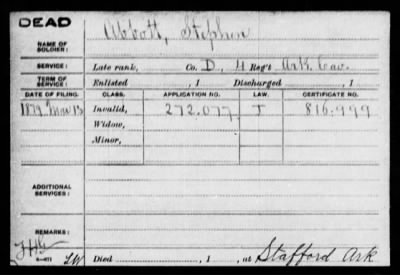 DEAD
Abbott, Stephen
NAME OF SOLDIER:
SERVICE: Late rank, Co. D, 4 Reg't Ark. Cav.
TERM OF SERVICE: Enlisted , 1 Discharged , 1
DATE OF FILING. CLASS. APPLICATION NO. LAW. CERTIFICATE NO.
1879 Mar 13 Invalid, 272.077 J 816.999
Widow,
Minor,
ADDITIONAL SERVICES:
REMARKS:
Died , 1 , at Stafford Ark